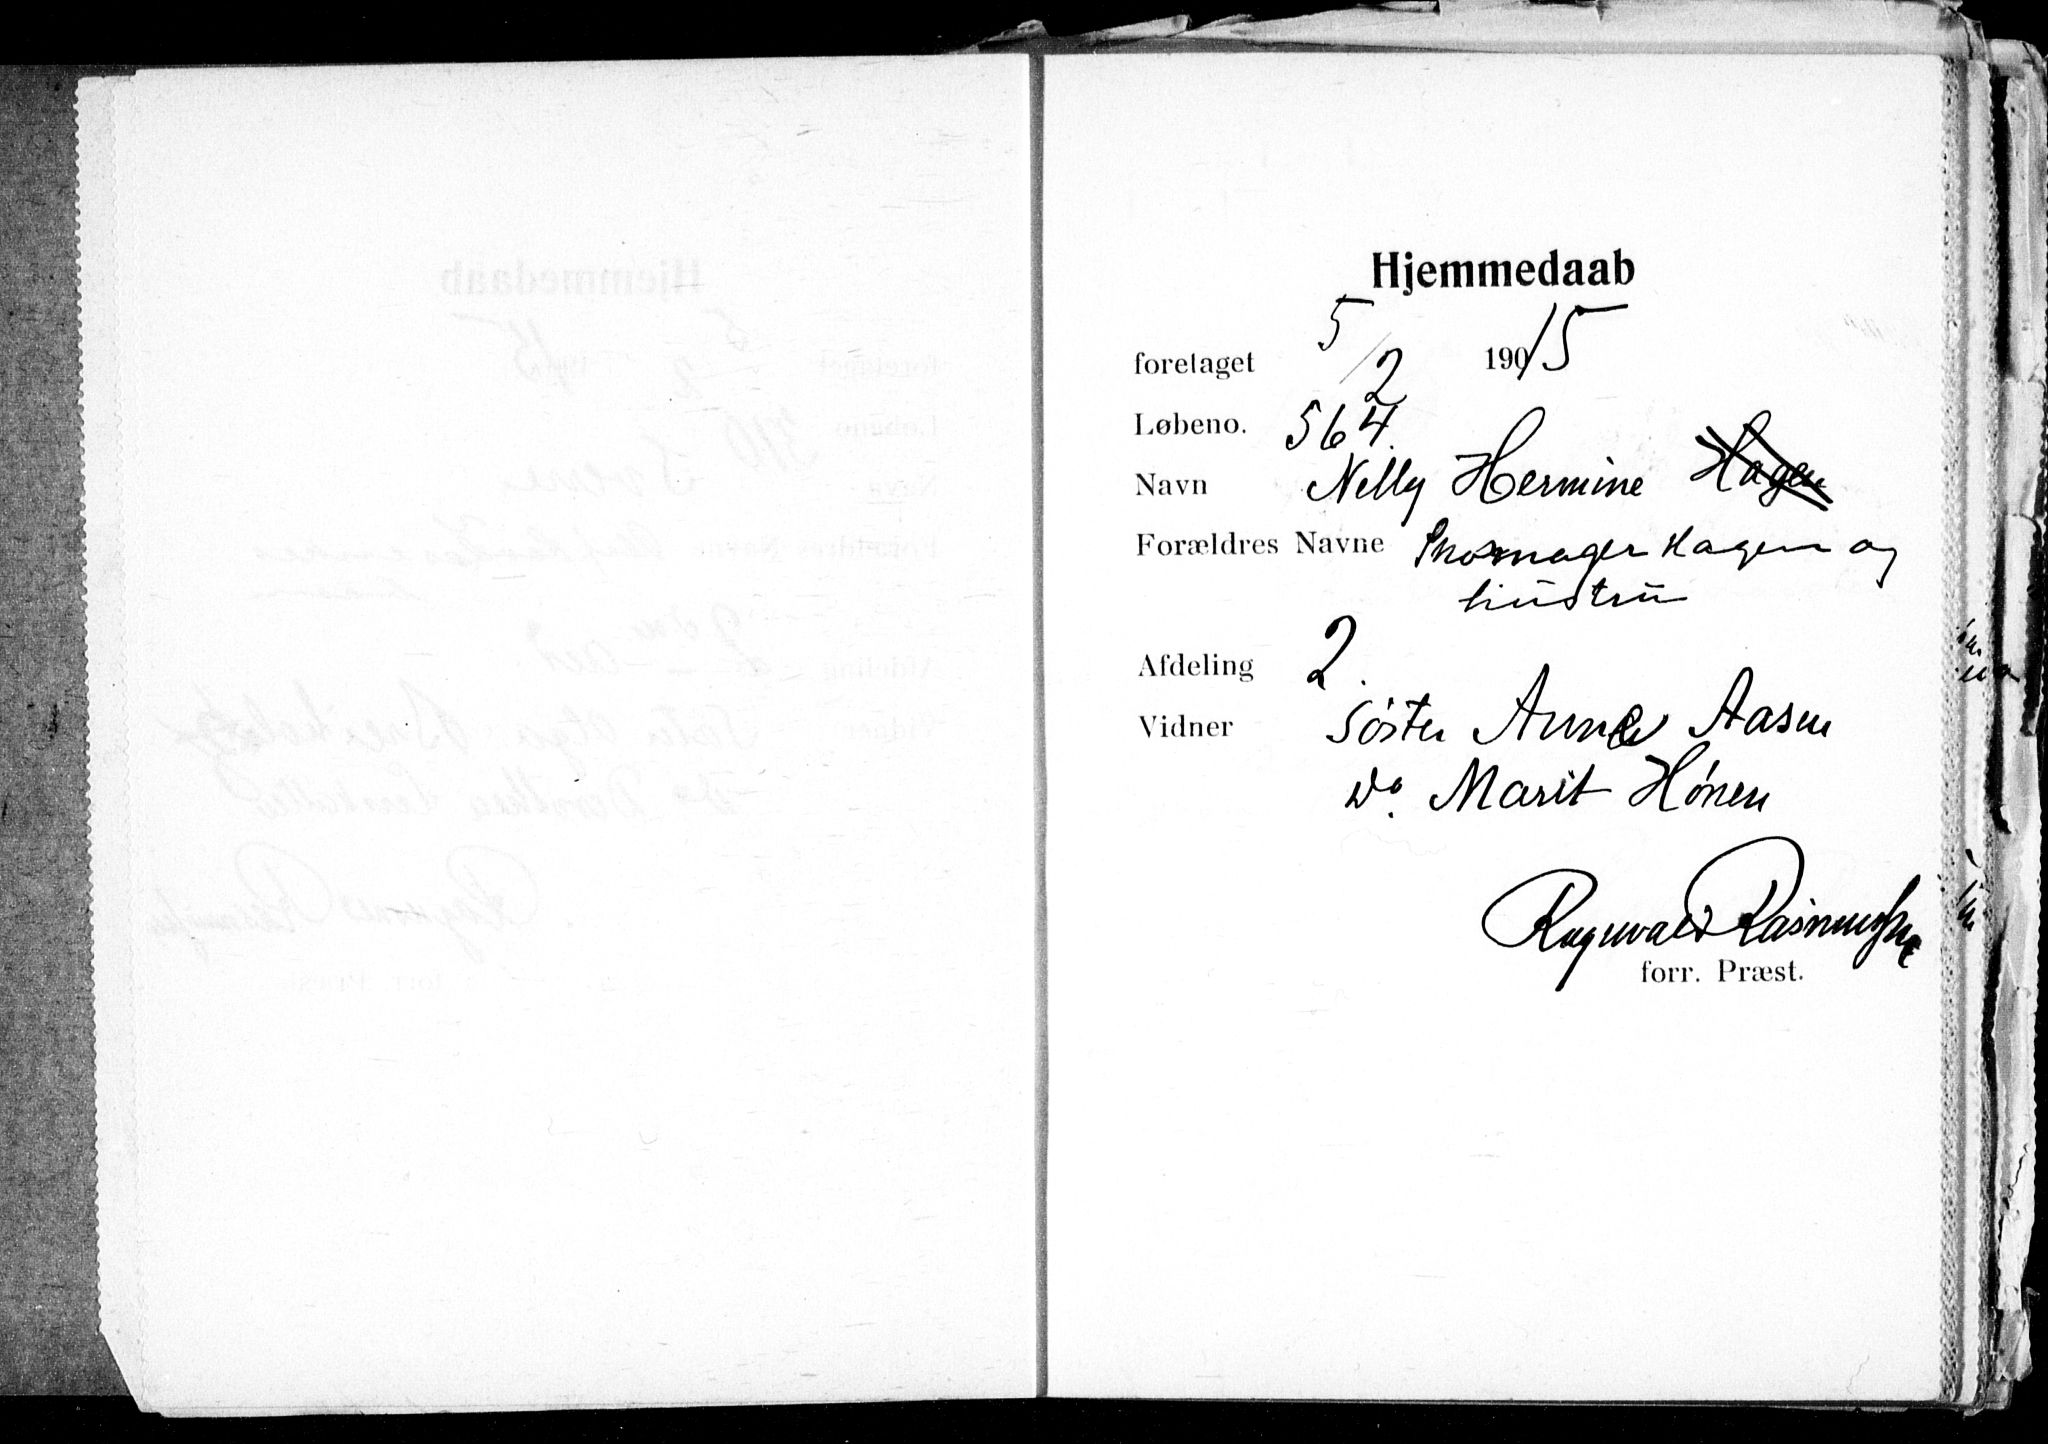 Hjemmedaab
foretaget 5/2 19015
Løbeno. 564.
Navn Nelly Hermine Hagen
Forældres Navne Skomager Hagen og
hustru
Afdeling 2.
Vidner Söster Anne Aasen
Do. Marit Hönen
Ragnvald Rasmussen
forr. Præst.